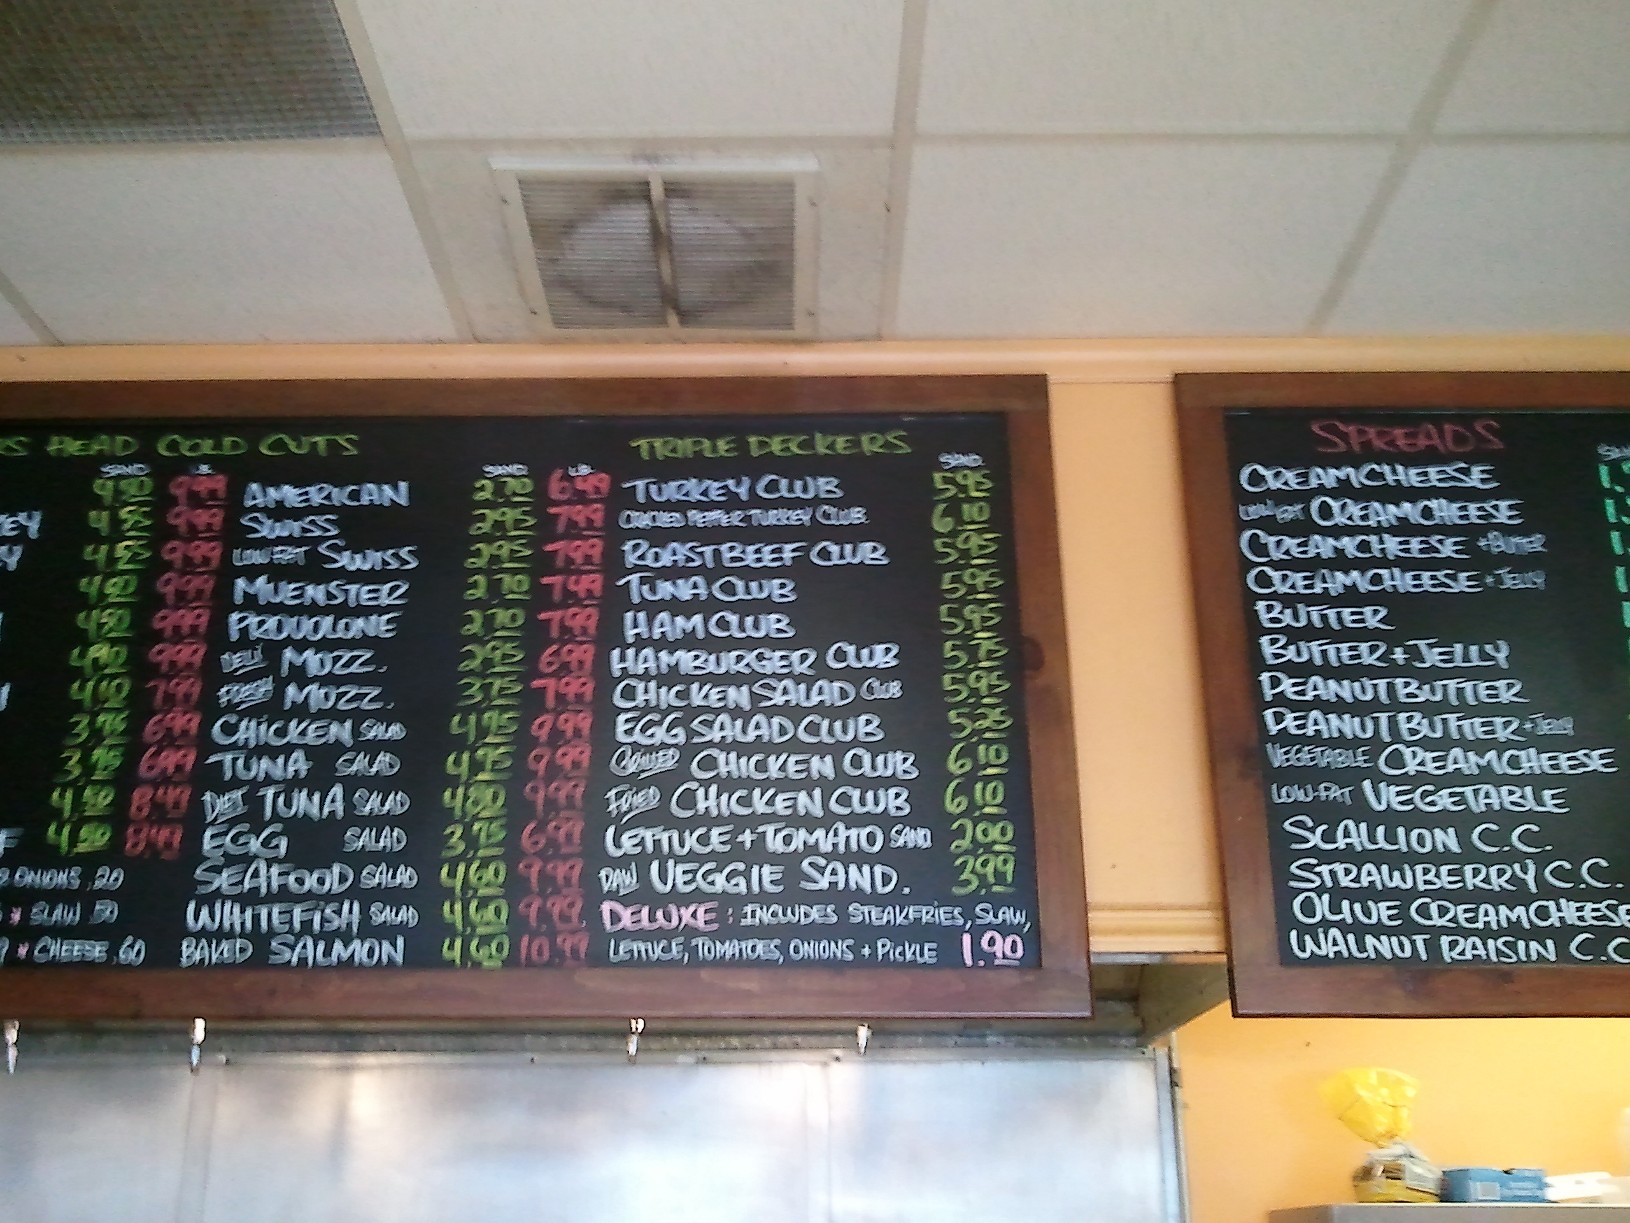 RS HEAD COLD CUTS
SAND LB.
4.50 9.99 AMERICAN 2.70 6.49
KEY 4.55 9.99 SWISS 2.95 7.99
Y 4.55 9.99 LOW-FAT SWISS 2.95 7.99
4.50 9.99 MUENSTER 2.70 7.49
4.50 9.99 PROVOLONE 2.70 7.99
4.90 9.99 DELI MOZZ. 2.95 6.99
4.10 7.99 FRESH MOZZ. 3.75 7.99
3.75 6.99 CHICKEN SALAD 4.75 9.99
3.75 6.99 TUNA SALAD 4.75 9.99
8.49 DIET TUNA SALAD 4.80 9.99
F 8.49 EGG SALAD 3.75 6.99
ONIONS .20 SEAFOOD SALAD 4.60 9.99
* SLAW .50 WHITEFISH SALAD 4.60 9.99
* CHEESE .60 BAKED SALMON 4.60 10.99
TRIPLE DECKERS
SAND.
TURKEY CLUB 5.95
CRACKED PEPPER TURKEY CLUB 6.10
ROAST BEEF CLUB 5.95
TUNA CLUB 5.95
HAM CLUB 5.95
HAMBURGER CLUB 5.75
CHICKEN SALAD CLUB 5.95
EGG SALAD CLUB 5.25
GRILLED CHICKEN CLUB 6.10
FRIED CHICKEN CLUB 6.10
LETTUCE + TOMATO SAND 2.00
RAW VEGGIE SAND. 3.99
DELUXE: INCLUDES STEAKFRIES, SLAW,
LETTUCE, TOMATOES, ONIONS + PICKLE 1.90
SPREADS
CREAMCHEESE
LOW-FAT CREAMCHEESE
CREAMCHEESE + BUTTER
CREAMCHEESE + JELLY
BUTTER
BUTTER + JELLY
PEANUT BUTTER
PEANUT BUTTER + JELLY
VEGETABLE CREAMCHEESE
LOW-FAT VEGETABLE
SCALLION C.C.
STRAWBERRY C.C.
OLIVE CREAMCHEESE
WALNUT RAISIN C.C